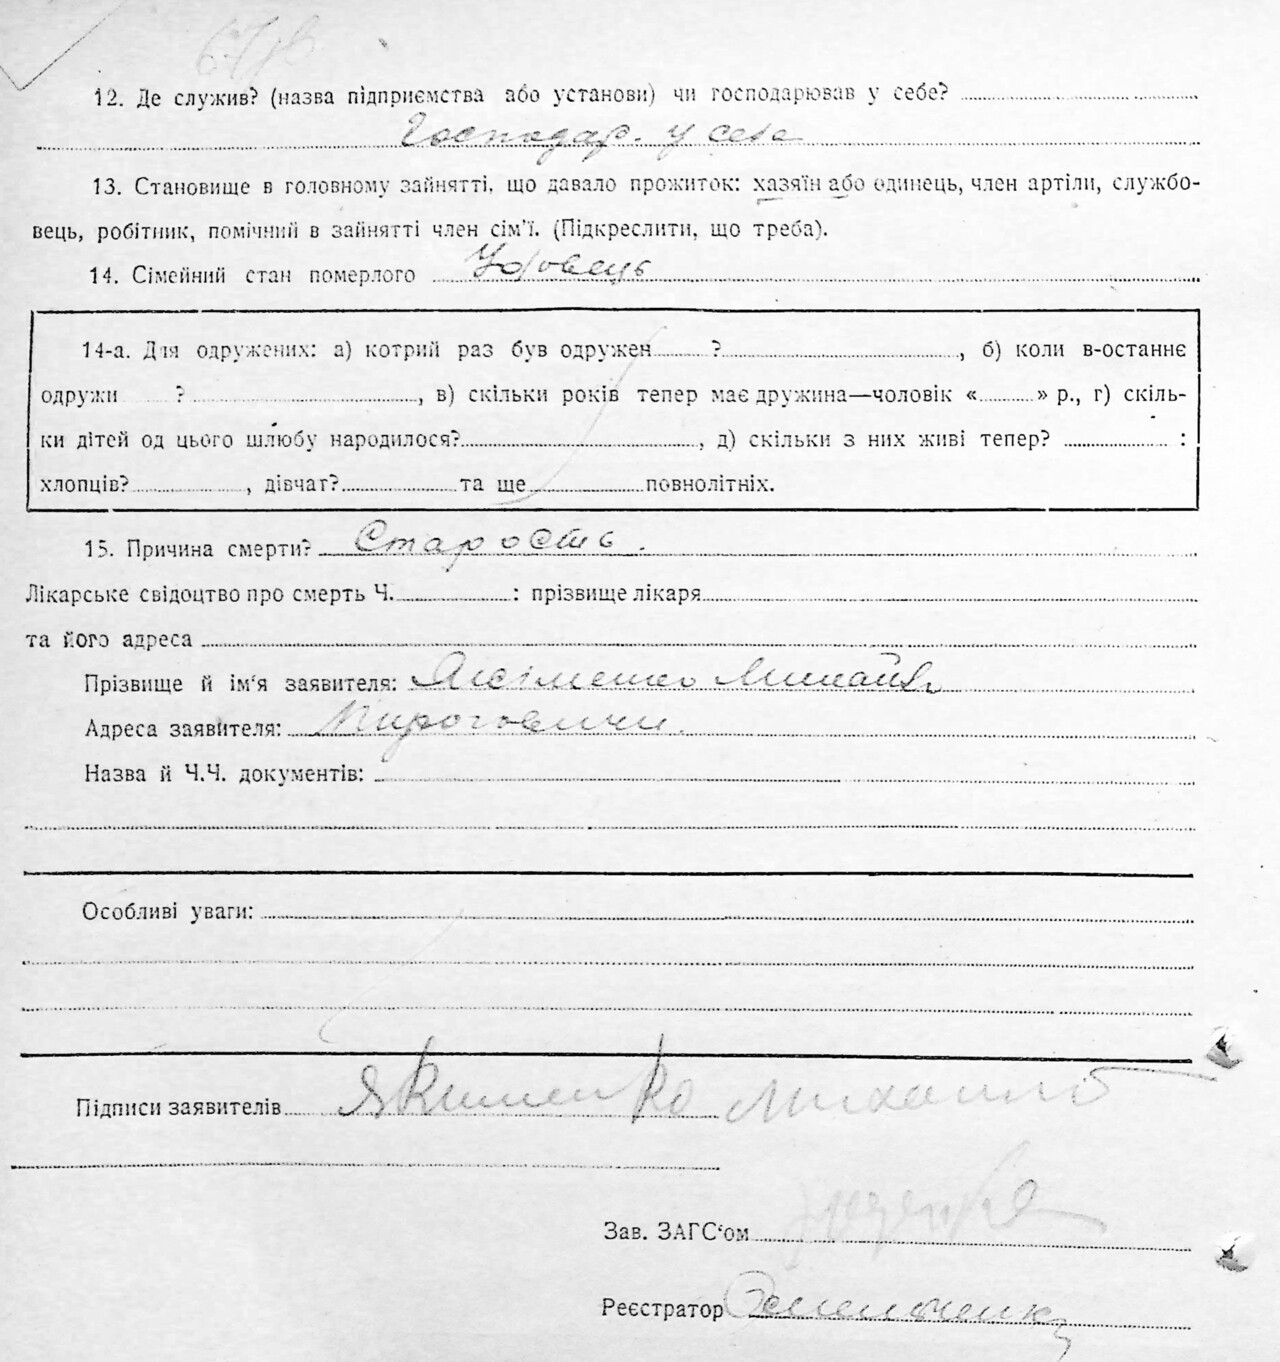 12. Де служив? (назва підприємства або установи) чи господарював у себе?
Господар. у себе
13. Становище в головному зайнятті, що давало прожиток: хазяїн або одинець, член артіли, службо-
вець, робітник, помічний в зайнятті член сім'ї. (Підкреслити, що треба).
14. Сімейний стан померлого Удовець
14-а. Для одружених: а) котрий раз був одружен ? , б) коли в-останнє
одружи ? , в) скільки років тепер має дружина—чоловік « » р., г) скіль-
ки дітей од цього шлюбу народилося? , д) скільки з них живі тепер? :
хлопців? , дівчат? та ще повнолітніх.
15. Причина смерти? Старость.
Лікарське свідоцтво про смерть Ч. : прізвище лікаря
та його адреса
Прізвище й ім'я заявителя: Якименко Михайло
Адреса заявителя: Пироговичи.
Назва й Ч.Ч. документів:
Особливі уваги:
Підписи заявителів Якименко Михаило
Зав. ЗАГС'ом
Реєстратор